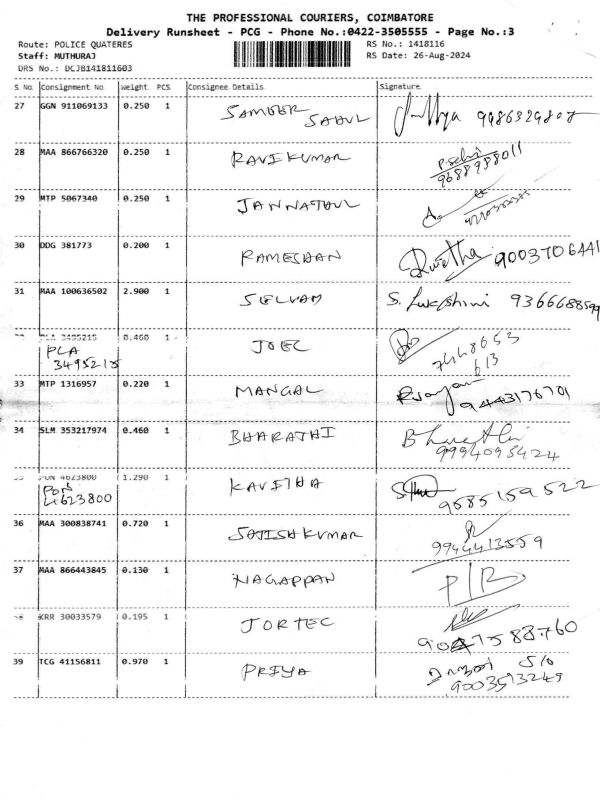 THE PROFESSIONAL COURIERS, COIMBATORE
Delivery Runsheet - PCG - Phone No.:0422-3505555 - Page No.:3
Route: POLICE QUATERES RS No.: 1418116
Staff: MUTHURAJ RS Date: 26-Aug-2024
DRS No.: DCJB141811603
S No. Consignment No Weight PCS Consignee Details Signature
27 GGN 911069133 0.250 1 SAMEER SAHUL
28 MAA 866766320 0.250 1 RAVIKUMAR P.Selvi
9688988011
29 MTP 5067340 0.250 1 JANNATHUL
30 DDG 381773 0.200 1 RAMESHAN Swetha 9003706441
31 MAA 100636502 2.900 1 SELVAM 9366688599
PLA 3495215 0.460 1 JOEL
PLA
3495215 7448653
613
33 MTP 1316957 0.220 1 MANGAL 9443176701
34 SLM 353217974 0.460 1 BHARATHI Bharathi
9994095424
PON 4623800 1.290 1 KAVITHA
PON
4623800 9585159522
36 MAA 300838741 0.720 1 SATISH KUMAR
9944413559
37 MAA 866443845 0.130 1 NAGAPPAN P/B
KRR 30033579 0.195 1 JORTEC
39 TCG 41156811 0.970 1 PRIYA S/o
9003513249